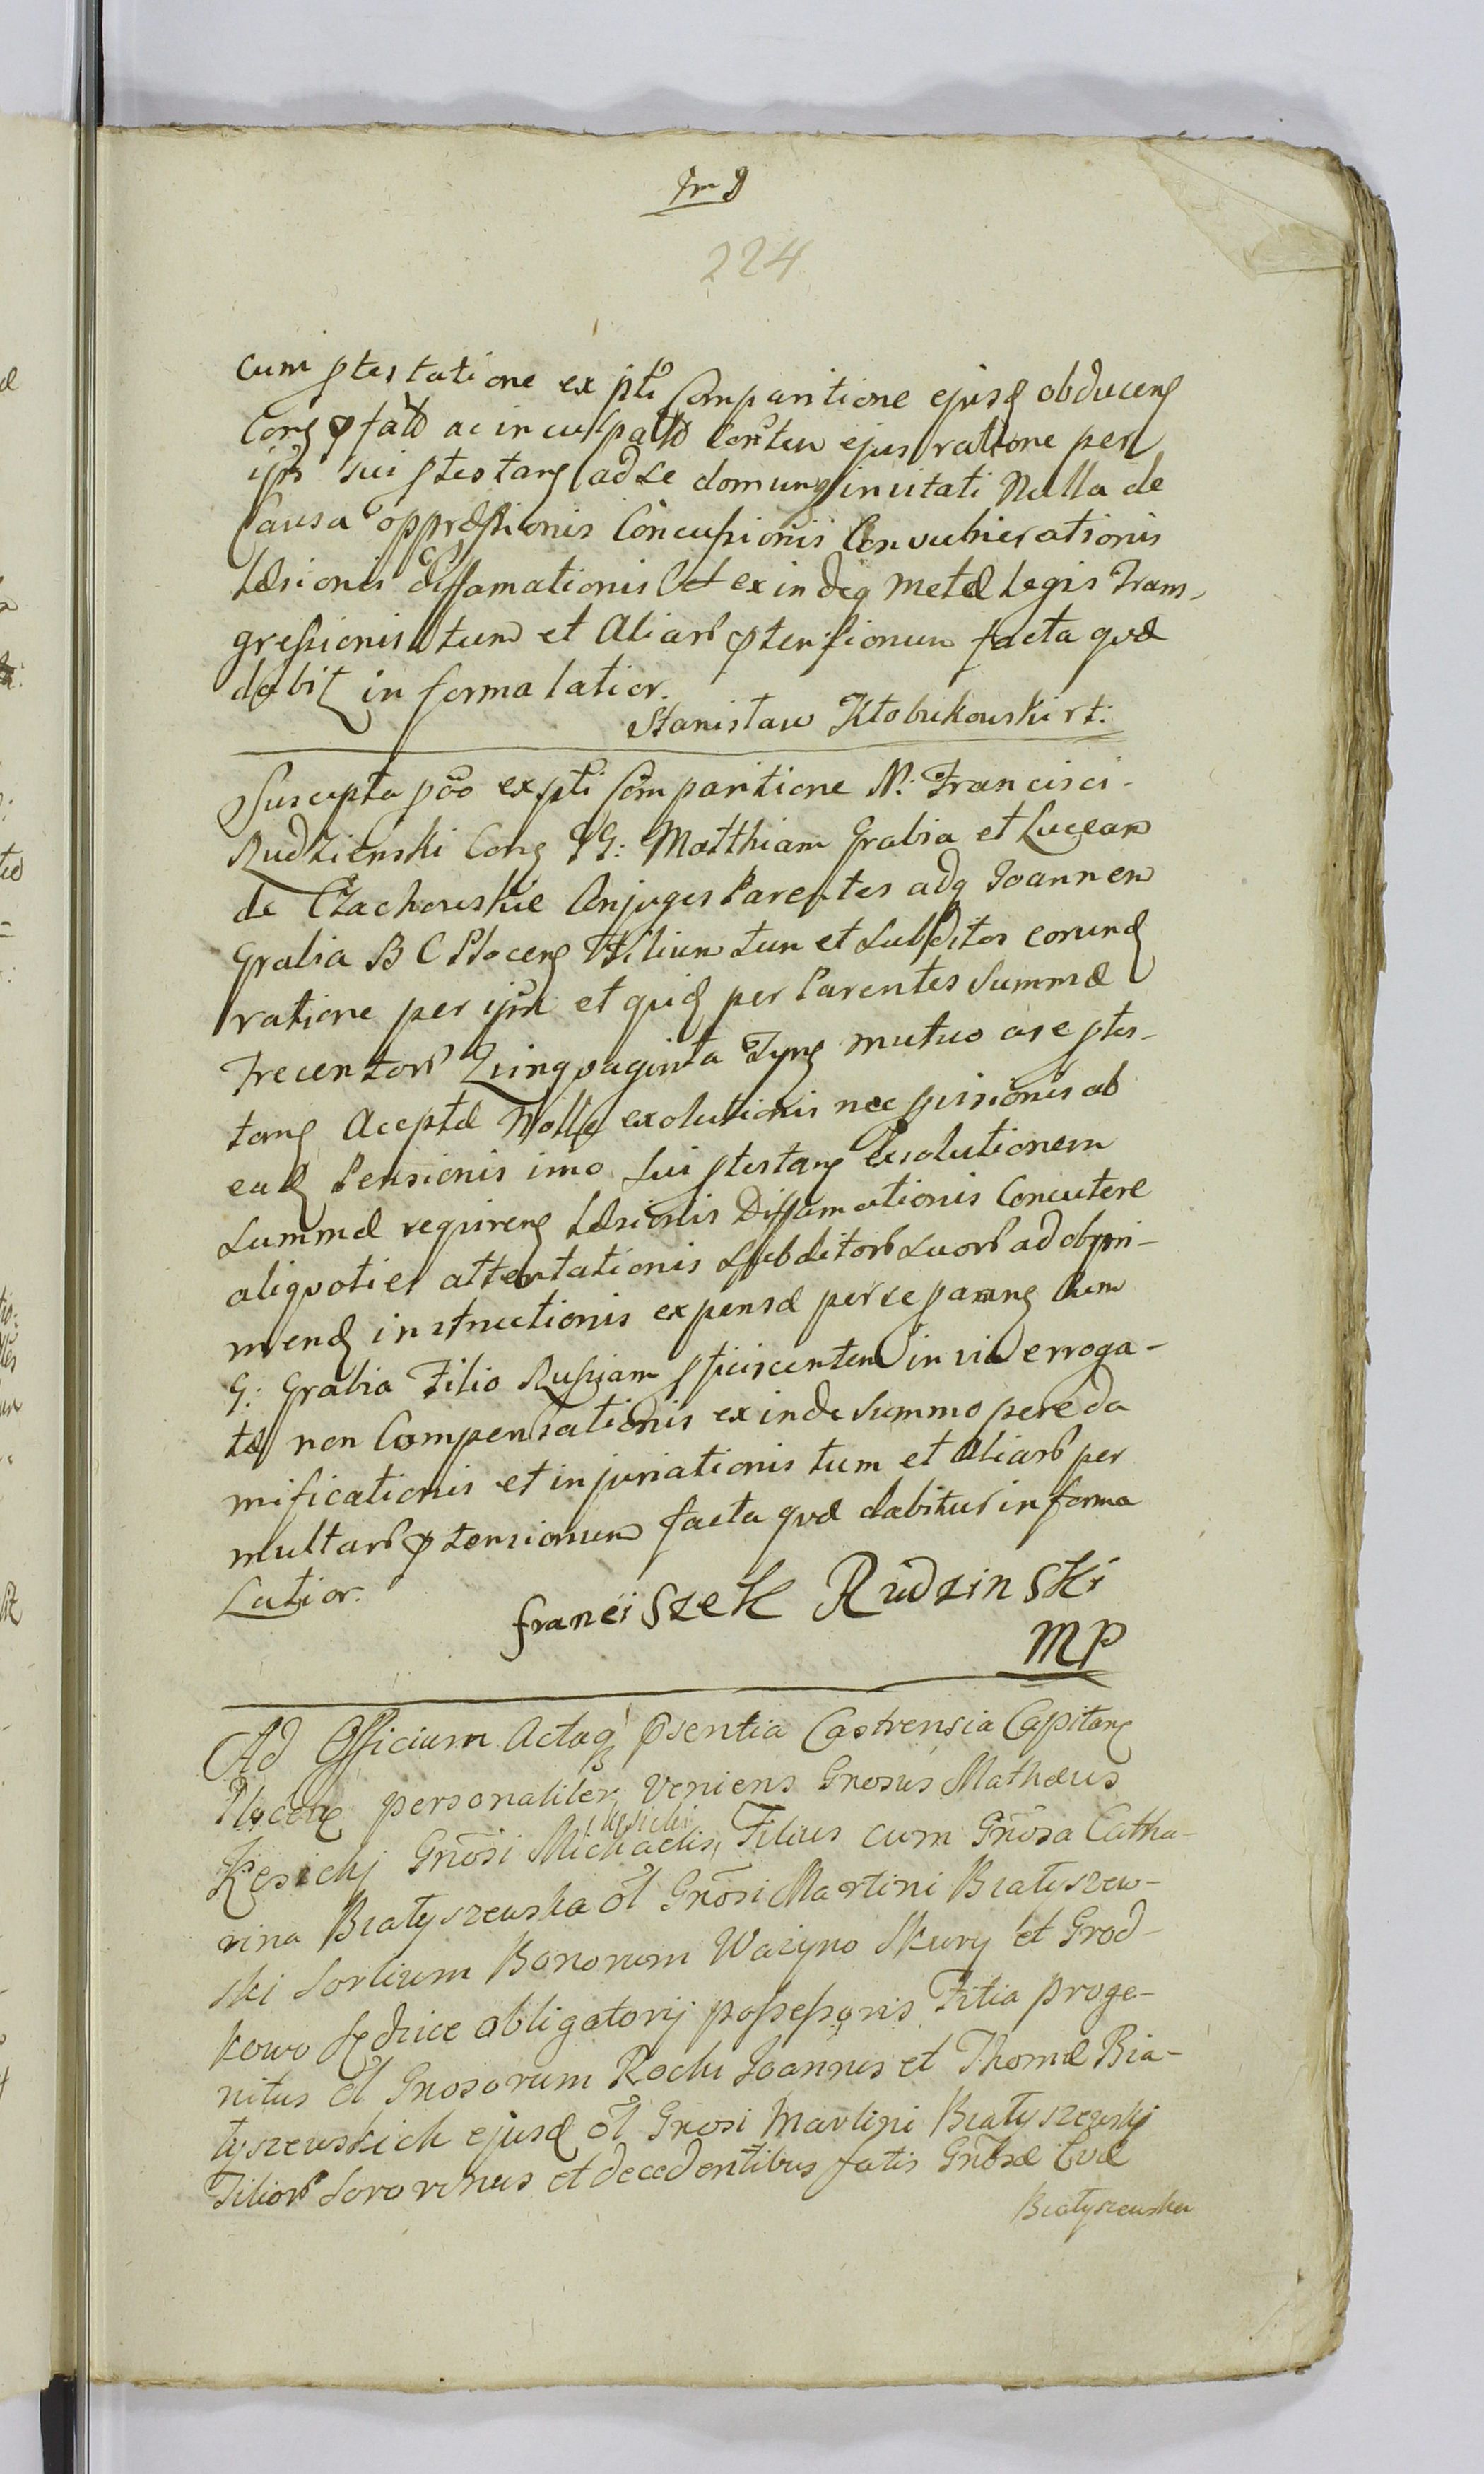 224
cum ptestatione ex pti Comparitione ejusd obduceng
Cong pfatõ ac inculpatõ Conten ejus ratione per
ipm sui ptestang ad se domumq invitati Nulla de
Causa oppressionis Concussionis Convulnerationis
Læsionis diffamationis et exindeq metæ Legis Trans-
gressionis tum et Aliarb ptensionum facta quæ
dabit in forma latior.
Stanisław Kłobukowski rt:
Suscepta põo ex pti Comparitione N: Francisci
Rudzienski Cong GG: Matthiam Grabia et Luceam
de Czachowskie Conjuges Parentes adq Joannem
Grabia B C Ploceng Filium tum et Subditos eorund
ratione per ipm et quid per Parentes Summæ
Trecentorb Qinquaginta Tynf mutuo a se ptes-
tang Aceptæ Nolle exolutionis nec pvisionis ab
ead Pensionis imo Sui ptestang Exsolutionem
Summæ requireng Læsionis Diffamationis Concutere
aliquoties attentationis Subditorb Suorb ad obpri-
mend instructionis expensæ per se parang Cum
G: Grabia Filio Russiam pficiscentem in via erroga-
tæ non Compensationis exinde Summopere da
mificationis et injuriationis tum et aliarb per
multarb ptensionum facta quæ dabitur in forma
Latior.
franciszek Rudzinski
MP
Ad Officium Actaq psentia Castrensia Capitang
Ploceng personaliter Veniens Gnosus Mathæus
Kęsickj Gnosi Michaelis Kęsicki Filius cum Gnosa Catha-
rina Białyszewska ol Gnosi Martini Białyszew-
ski Sortium Bonorum Wazyno Skury et Grod-
kowo Sędzice obligatorij possessoris Filia proge-
nitus ol Gnosorum Rochi Joannis et Thomæ Bia-
łyszewskich ejusd ol Gnosi Martini Białyszewskj
Filiorb Sororinus et decedentibus fatis Gnosæ Cvæ
Białyszewska